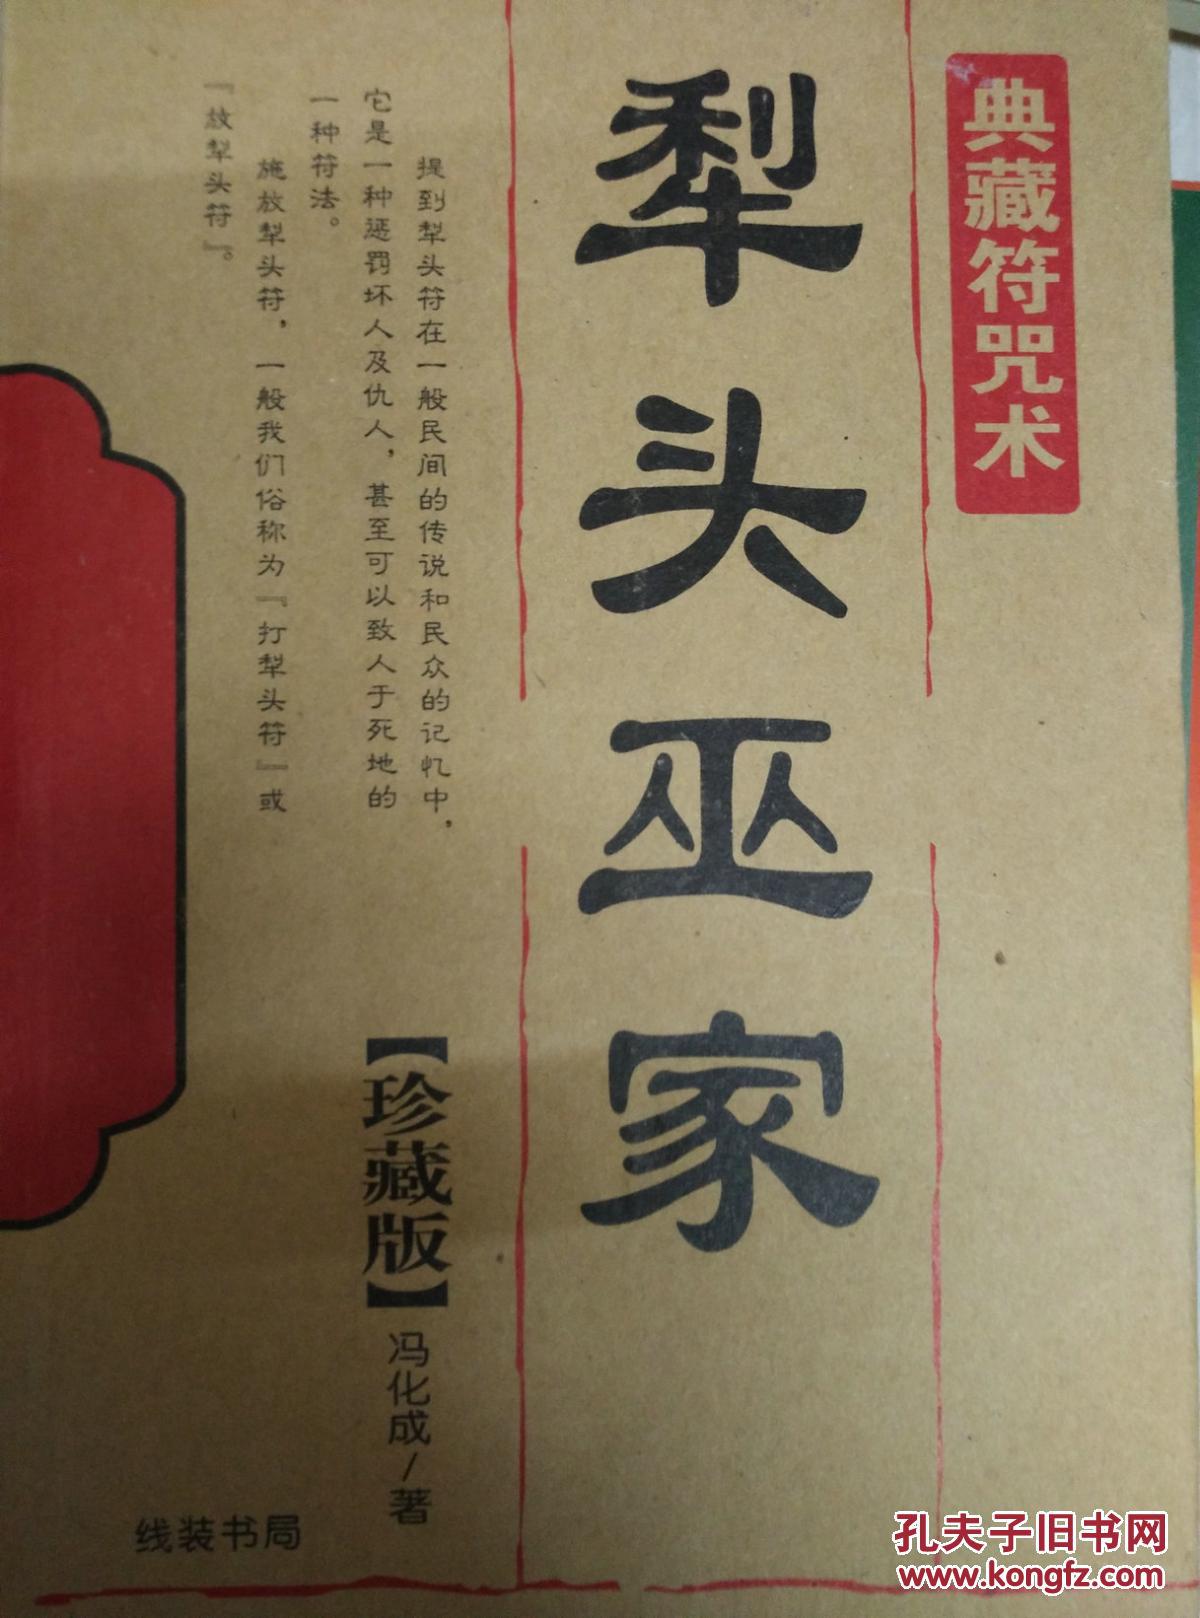 典藏符咒术
犁头巫家
提到犁头符在一般民间的传说和民众的记忆中，
它是一种惩罚坏人及仇人，甚至可以致人于死地的
一种符法。
施放犁头符，一般我们俗称为『打犁头符』或
『放犁头符』。
【珍藏版】
冯化成/著
线装书局
孔夫子旧书网
www.kongfz.com